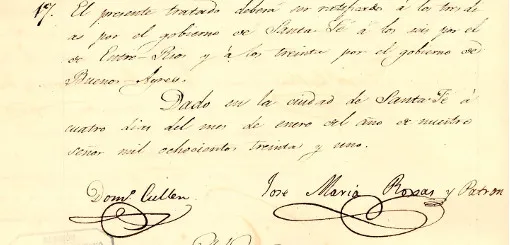 17. El presente tratado deberá ser ratificado á los tres di
as por el gobierno de Santa-Fé á los seis por el
de Entre-Rios y á los treinta por el gobierno de
Buenos Ayres.
Dado en la ciudad de Santa-Fé á
cuatro dias del mes de enero del año de nuestro
señor mil ochocientos treinta y uno.
Domº Cullen. José Maria Roxas y Patron